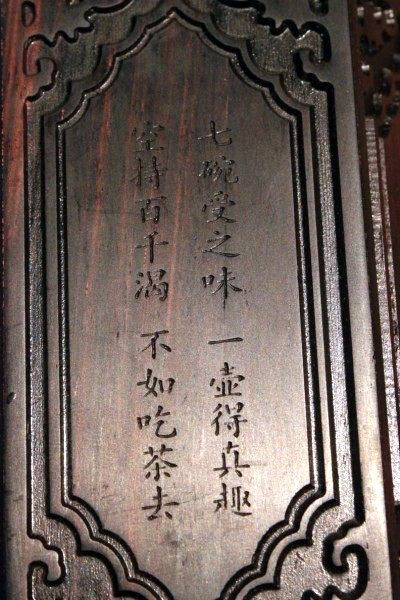 七碗受之味 一壶得真趣
空持百千渴 不如吃茶去